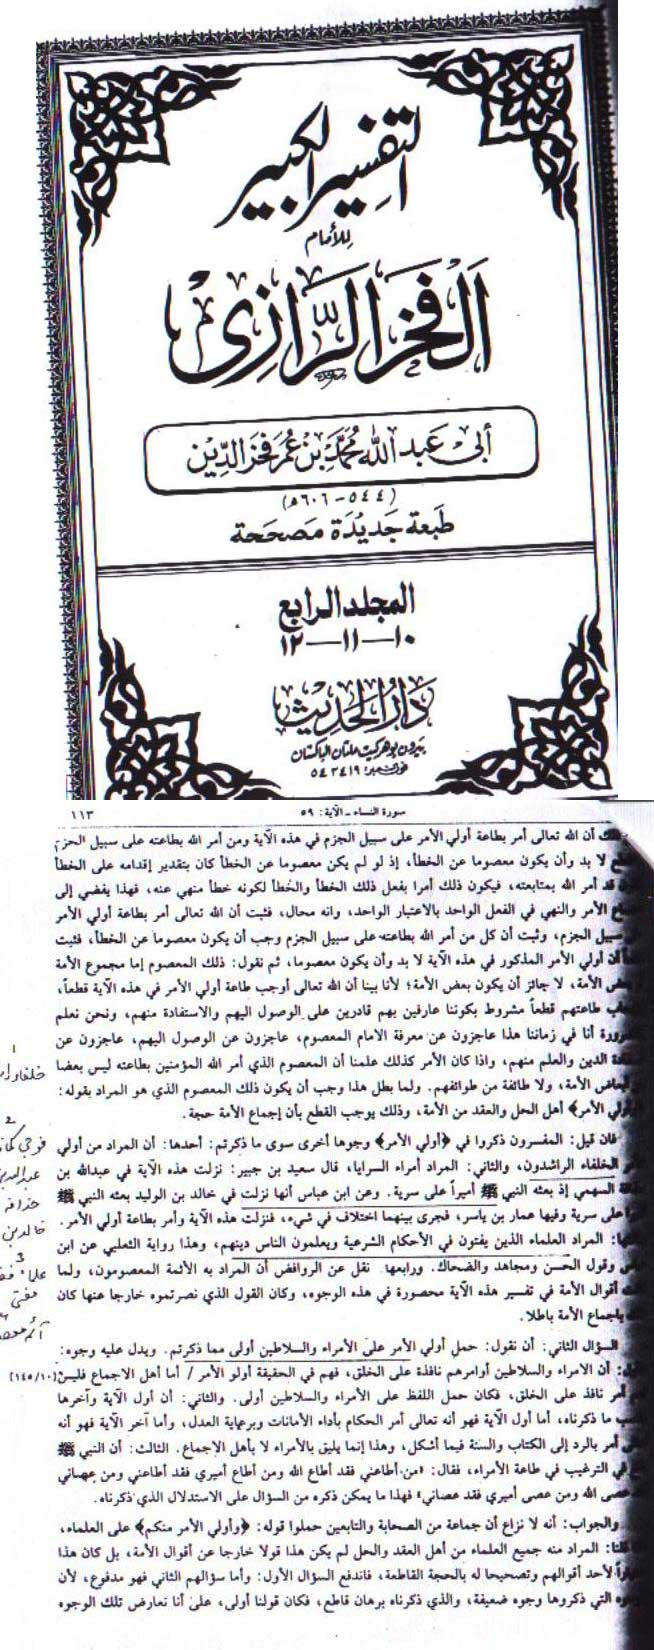 التفسير الكبير
للأمام
الفخر الرازي
أبي عبد الله محمد بن عمر فخر الدين
(٥٤٤ - ٦٠٦ هـ)
طبعة جديدة مصححة
المجلد الرابع
١٠ — ١١ — ١٢
دار الحديث
بيرون بوهڑ گیٹ ملتان الباكستان
فون نمبر: ٥٤٣٤١٩
سورة النساء - الآية: ٥٩
١١٣
أن الله تعالى أمر بطاعة أولي الأمر على سبيل الجزم في هذه الآية ومن أمر الله بطاعته على سبيل الجزم
لا بد وأن يكون معصوما عن الخطأ، إذ لو لم يكن معصوما عن الخطأ كان بتقدير إقدامه على الخطأ
قد أمر الله بمتابعته، فيكون ذلك أمرا بفعل ذلك الخطأ والخطأ لكونه خطأ منهي عنه، فهذا يفضي إلى
الأمر والنهي في الفعل الواحد بالاعتبار الواحد، وانه محال، فثبت أن الله تعالى أمر بطاعة أولي الأمر
سبيل الجزم، وثبت أن كل من أمر الله بطاعته على سبيل الجزم وجب أن يكون معصوما عن الخطأ، فثبت
أن أولي الأمر المذكور في هذه الآية لا بد وأن يكون معصوما، ثم نقول: ذلك المعصوم إما مجموع الأمة
بعض الأمة، لا جائز أن يكون بعض الأمة؛ لأنا بينا أن الله تعالى أوجب طاعة أولي الأمر في هذه الآية قطعاً،
طاعتهم قطعاً مشروط بكوننا عارفين بهم قادرين على الوصول اليهم والاستفادة منهم، ونحن نعلم
أنا في زماننا هذا عاجزون عن معرفة الامام المعصوم، عاجزون عن الوصول اليهم، عاجزون عن
الدين والعلم منهم، واذا كان الأمر كذلك علمنا أن المعصوم الذي أمر الله المؤمنين بطاعته ليس بعضا
الأمة، ولا طائفة من طوائفهم. ولما بطل هذا وجب أن يكون ذلك المعصوم الذي هو المراد بقوله:
الأمر﴾ أهل الحل والعقد من الأمة، وذلك يوجب القطع بأن إجماع الأمة حجة.
فان قيل: المفسرون ذكروا في ﴿أولي الأمر﴾ وجوها أخرى سوى ما ذكرتم: أحدها: أن المراد من أولي
الخلفاء الراشدون، والثاني: المراد أمراء السرايا، قال سعيد بن جبير: نزلت هذه الآية في عبدالله بن
السهمي إذ بعثه النبي ﷺ أميراً على سرية. وعن ابن عباس أنها نزلت في خالد بن الوليد بعثه النبي ﷺ
على سرية وفيها عمار بن ياسر، فجرى بينهما اختلاف في شيء، فنزلت هذه الآية وأمر بطاعة أولي الأمر.
المراد العلماء الذين يفتون في الأحكام الشرعية ويعلمون الناس دينهم، وهذا رواية الثعلبي عن ابن
وقول الحسن ومجاهد والضحاك. ورابعها نقل عن الروافض أن المراد به الأئمة المعصومون، ولما
أقوال الأمة في تفسير هذه الآية محصورة في هذه الوجوه، وكان القول الذي نصرتموه خارجا عنها كان
باجماع الأمة باطلا.
السؤال الثاني: أن نقول: حمل أولي الأمر على الأمراء والسلاطين أولى مما ذكرتم. ويدل عليه وجوه:
أن الامراء والسلاطين أوامرهم نافذة على الخلق، فهم في الحقيقة أولو الأمر / أما أهل الاجماع فليس (١٤٥/١٠)
أمر نافذ على الخلق، فكان حمل اللفظ على الأمراء والسلاطين أولى. والثاني: أن أول الآية وآخرها
ما ذكرناه، أما أول الآية فهو أنه تعالى أمر الحكام بأداء الأمانات وبرعاية العدل، وأما آخر الآية فهو أنه
أمر بالرد إلى الكتاب والسنة فيما أشكل، وهذا إنما يليق بالأمراء لا بأهل الإجماع. الثالث: أن النبي ﷺ
في الترغيب في طاعة الأمراء، فقال: «من أطاعني فقد أطاع الله ومن أطاع أميري فقد أطاعني ومن عصاني
عصى الله ومن عصى أميري فقد عصاني» فهذا ما يمكن ذكره من السؤال على الاستدلال الذي ذكرناه.
والجواب: أنه لا نزاع أن جماعة من الصحابة والتابعين حملوا قوله: ﴿وأولي الأمر منكم﴾ على العلماء،
المراد منه جميع العلماء من أهل العقد والحل لم يكن هذا قولا خارجا عن أقوال الأمة، بل كان هذا
لأحد أقوالهم وتصحيحا له بالحجة القاطعة، فاندفع السؤال الأول: وأما سؤالهم الثاني فهو مدفوع، لأن
التي ذكروها وجوه ضعيفة، والذي ذكرناه برهان قاطع، فكان قولنا أولى، على أنا نعارض تلك الوجوه